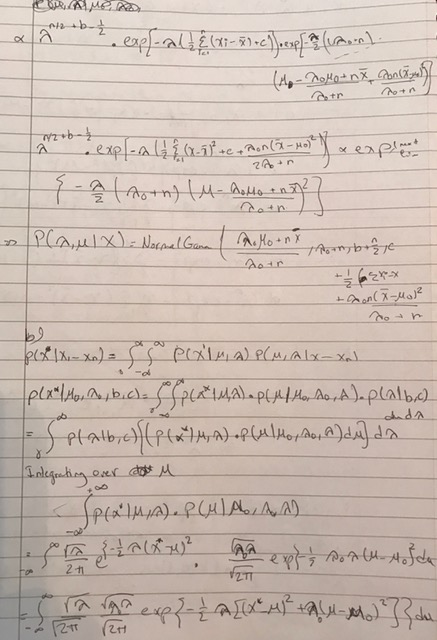 ∝ λ^{n/2+b-1/2} · exp[-λ(1/2 Σ_{i=1}^{n}(xi-x̄)+c)] · exp[-λ/2(λ0+n)
(μ0 - (λ0μ0+nx̄)/(λ0+n) + λ0n(x̄-μ0)²/(λ0+n))
λ^{n/2+b-1/2} · exp[-λ(1/2 Σ_{i=1}^{n}(x-x̄)²+c+ λ0n(x̄-μ0)²/(2λ0+n))] ∝ exp
{-λ/2 (λ0+n) (μ - (λ0μ0+nx̄)/(λ0+n))²}]
⇒ P(λ,μ|X) = NormalGama ( (λ0μ0+nx̄)/(λ0+n), λ0+n, b+n/2, c
+1/2
+ λ0n(x̄-μ0)²/(λ0+n)
b)
p(x*|x1-xn) = ∫∫_{-∞}^{∞} P(x*|μ,λ) P(μ,λ|x-xn)
p(x*|μ0,λ0,b,c) = ∫∫_{-∞}^{∞} p(x*|μ,λ)·p(μ|μ0,λ0,λ)·p(λ|b,c)
dμdλ
= ∫^{∞} p(λ|b,c) [∫p(x*|μ,λ)·p(μ|μ0,λ0,λ)dμ] dλ
Integrating over μ
∫_{-∞}^{+∞} p(x*|μ,λ)·p(μ|μ0,λ0,λ)
= ∫_{-∞}^{∞} √λ/2π e^{-1/2 λ(x*-μ)²} · √λ0λ/√2π exp{-1/2 λ0λ(μ-μ0)²dμ
= ∫_{-∞}^{∞} √λ/√2π √λ0λ/√2π exp{-1/2 λ[(x*-μ)²+λ0(μ-μ0)²]}dμ